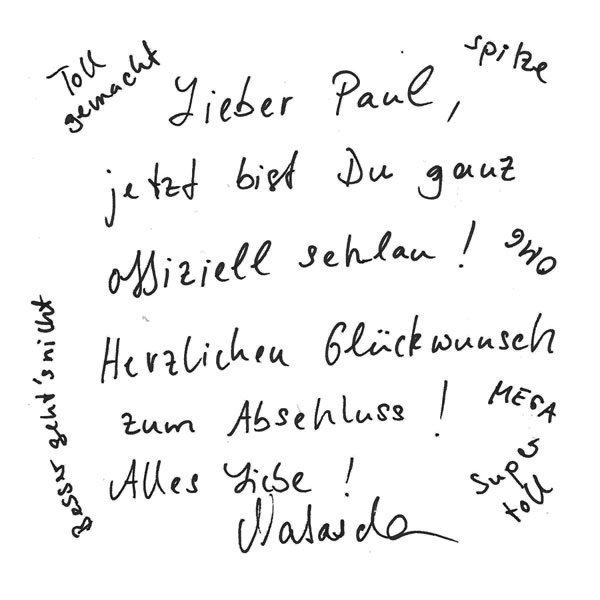 Toll
gemacht
spitze
Lieber Paul,
jetzt bist Du ganz
offiziell schlau!
OMG
Herzlichen Glückwunsch
zum Abschluss!
MEGA
Besser geht's nicht
Alles Liebe!
super
toll